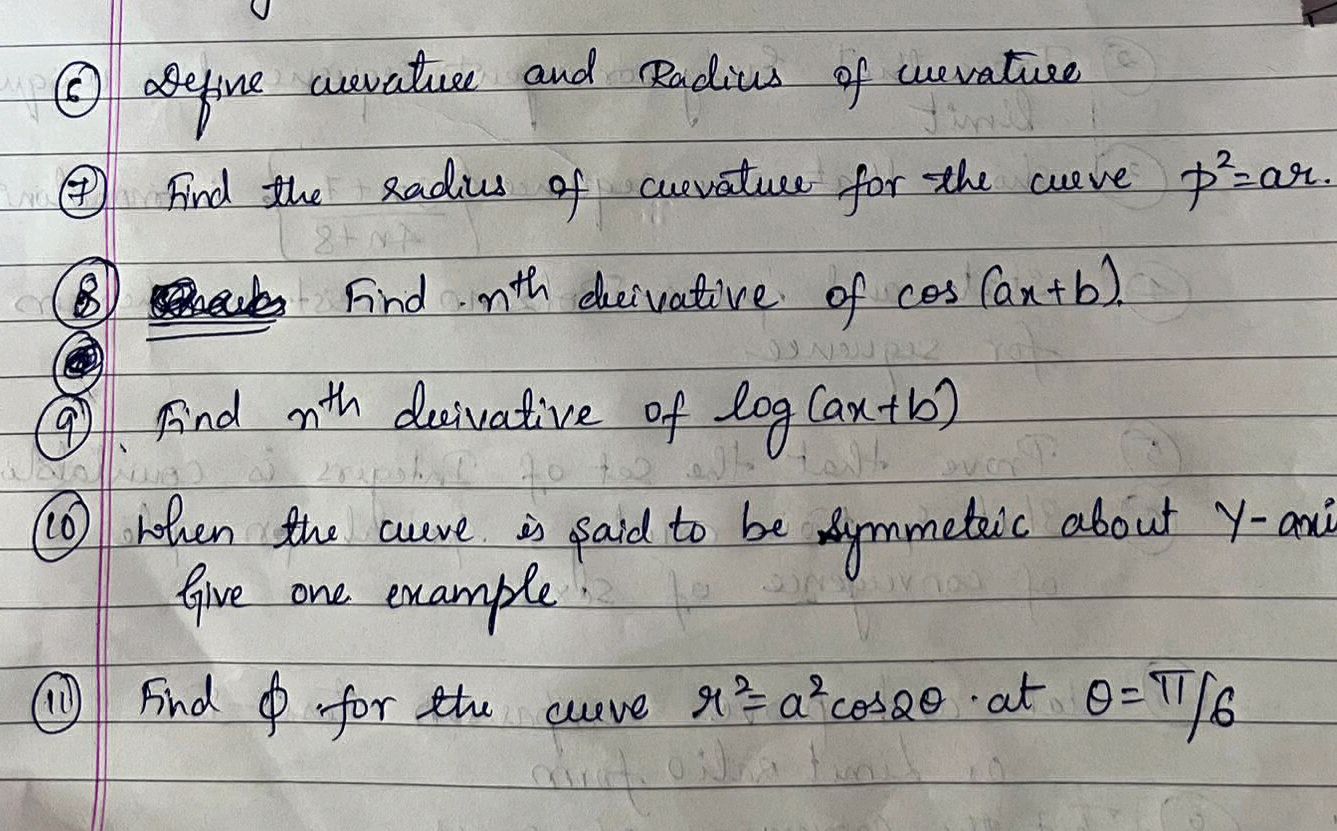 ⑥ Define curvature and Radius of curvature
⑦ Find the radius of curvature for the curve p²=ar.
⑧ Find nth derivative of cos(ax+b).
⑨ Find nth derivative of log(ax+b)
⑩ When the curve is said to be symmetric about Y-axi
Give one example.
⑪ Find ϕ for the curve r²=a²cos2θ at θ=π/6